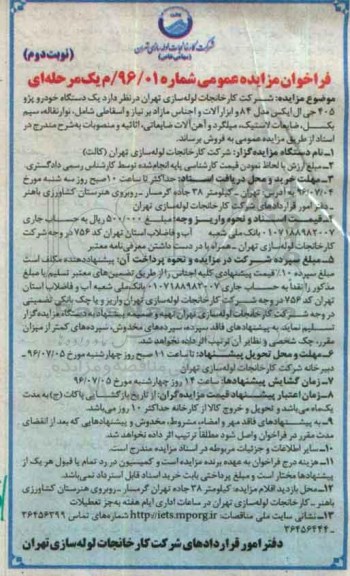 شرکت کارخانجات لوله‌سازی تهران
(سهامی خاص)
(نوبت دوم)
فراخوان مزایده عمومی شماره ۹۶/۰۱/م یک مرحله‌ای
موضوع مزایده: شرکت کارخانجات لوله‌سازی تهران در نظر دارد یک دستگاه خودرو پژو
۴۰۵ جی ال ایکس مدل ۸۴ و ابزارآلات و اجناس مازاد بر نیاز و اسقاطی شامل، نوار نقاله، سیم
بکسل، ضایعات لاستیک، میلگرد و آهن‌آلات ضایعاتی، اثاثیه و منصوبات به شرح مندرج در
اسناد از طریق مزایده عمومی به فروش برساند.
۱-نام دستگاه مزایده‌گزار: شرکت کارخانجات لوله‌سازی تهران (کالت)
۲-مبلغ ارزش با لحاظ نمودن قیمت کارشناسی پایه انجام شده توسط کارشناس رسمی دادگستری.
۳-مهلت خرید و محل دریافت اسناد: حداکثر تا ساعت ۱۰ صبح روز سه شنبه مورخ
۹۶/۰۷/۰۴ به آدرس: تهران- کیلومتر ۳۸ جاده گرمسار- روبروی هنرستان کشاورزی باهنر
- دفتر امور قراردادهای شرکت کارخانجات لوله‌سازی تهران
۴-قیمت اسناد و نحوه واریز وجه: مبلغ ۵۰۰/۰۰۰ ریال به حساب جاری
۰۱۰۷۱۸۸۹۸۲۰۰۷ بانک ملی شعبه آب و فاضلاب استان تهران کد ۷۵۶ در وجه شرکت
کارخانجات لوله‌سازی تهران- همراه با در دست داشتن معرفی‌نامه معتبر
۵-مبلغ سپرده شرکت در مزایده و نحوه پرداخت آن: پیشنهاددهنده مکلف است
مبلغ سپرده ۱۰٪ قیمت پیشنهادی کلیه اجناس را از طریق تضمین‌های معتبر تسلیم یا مبلغ
مذکور را نقداً به حساب جاری ۰۱۰۷۱۸۸۹۸۳۰۰۷ بانک ملی شعبه آب و فاضلاب استان
تهران کد ۷۵۶ در وجه شرکت کارخانجات لوله‌سازی تهران واریز و یا چک بانکی تضمینی
در وجه شرکت کارخانجات لوله‌سازی تهران تهیه و ضمیمه پیشنهاد به دستگاه مزایده‌گزار
تسلیم نماید. به پیشنهادهای فاقد سپرده، سپرده‌های مخدوش، سپرده‌های کمتر از میزان
مقرر، چک شخصی و نظایر آن ترتیب اثر داده نخواهد شد.
۶-مهلت و محل تحویل پیشنهاد: تا ساعت ۱۱ صبح روز چهارشنبه مورخ ۹۶/۰۷/۰۵-
دبیرخانه شرکت کارخانجات لوله‌سازی تهران
۷-زمان گشایش پیشنهادها: ساعت ۱۴ روز چهارشنبه مورخ ۹۶/۰۷/۰۵
۸-زمان اعتبار پیشنهاد قیمت مزایده‌گران: از تاریخ بازگشایی پاکات (ج) به مدت
یک‌ماه می‌باشد و تحویل و خروج کالا از کارخانه حداکثر ۱۰ روز می‌باشد.
۹-به پیشنهادهای فاقد مهر و امضاء، مشروط، مخدوش و پیشنهادهایی که بعد از انقضای
مدت مقرر در فراخوان واصل شود مطلقاً ترتیب اثر داده نخواهد شد.
۱۰-سایر اطلاعات و جزئیات مربوطه در اسناد مزایده مندرج است.
۱۱-هزینه درج فراخوان به عهده برنده مزایده است و کمیسیون در رد تمام یا قبول هر یک از
پیشنهادها مختار است و مبلغ پرداختی بابت خرید اسناد قابل استرداد نمی‌باشد.
۱۲-محل بازدید اقلام مزایده: کیلومتر ۳۸ جاده تهران گرمسار- روبروی هنرستان کشاورزی
باهنر- کارخانجات لوله‌سازی تهران در ساعات اداری ایام هفته به‌جز تعطیلات
۱۳-نشانی سایت ملی مناقصات: http://iets.mporg.ir شماره‌های تماس ۳۶۴۵۶۳۹۹
-۳۶۴۵۶۴۴۴
دفتر امور قراردادهای شرکت کارخانجات لوله‌سازی تهران